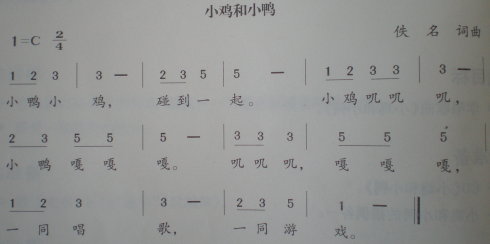 小鸡和小鸭
1=C 2/4
佚 名 词曲
1 2 3 | 3 — | 2 3 5 | 5 — | 1 2 3 3 | 3 — |
小 鸭 小 鸡， 碰 到 一 起。 小 鸡 叽 叽 叽，
2 3 5 5 | 5 — | 3 3 3 | 5 5 5 |
小 鸭 嘎 嘎 嘎。 叽 叽 叽， 嘎 嘎 嘎，
1 2 3 | 3 — | 2 3 5 | 1 — ‖
一 同 唱 歌， 一 同 游 戏。